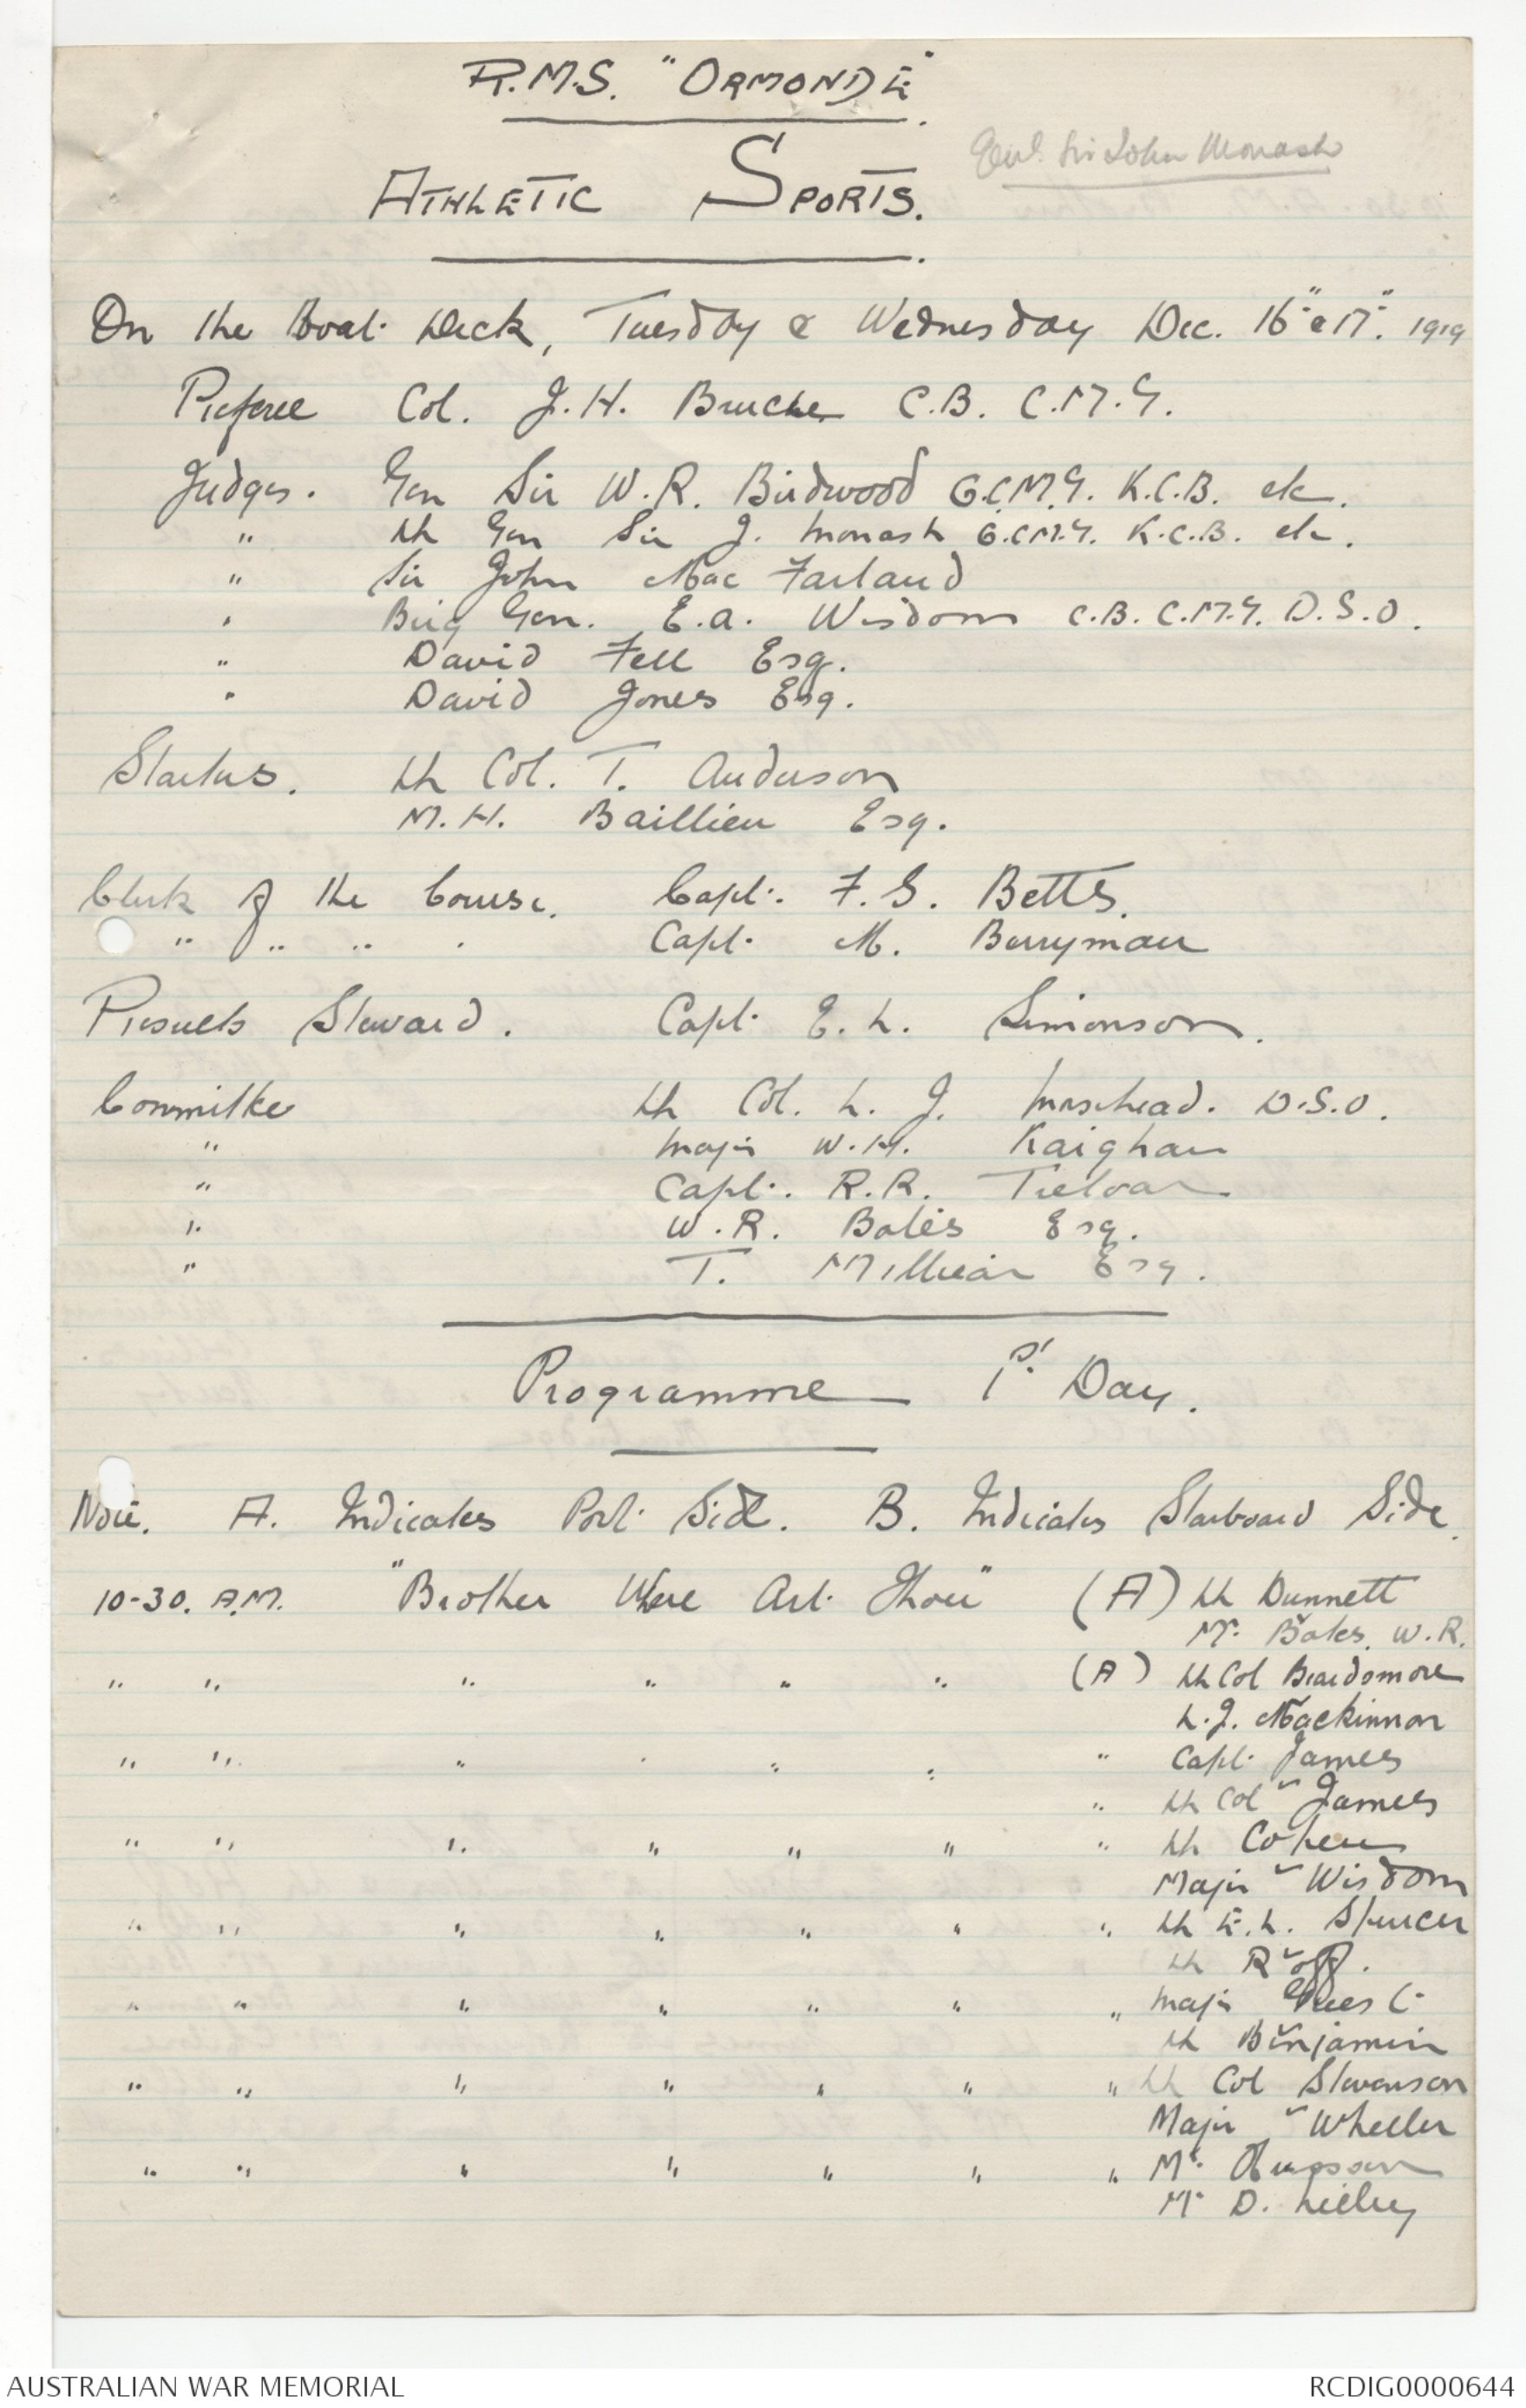 R.M.S. "ORMONDE".
Genl. Sir John Monash
ATHLETIC SPORTS.
On the Boat Deck, Tuesday & Wednesday Dec. 16th & 17th. 1919
Referee Col. J.H. Bruche C.B. C.M.G.
Judges. Gen Sir W.R. Birdwood G.C.M.G. K.C.B. etc.
" Lt Gen Sir J. Monash G.C.M.G. K.C.B. etc.
" Sir John MacFarland
" Brig Gen. E.A. Wisdom C.B. C.M.G. D.S.O.
" David Fell Esq.
" David Jones Esq.
Starters. Lt Col. T. Anderson
M.H. Baillieu Esq.
Clerk of the Course. Capt. F.G. Betts.
" " " " Capt. M. Berryman
Results Steward. Capt. E.L. Simonson.
Committee Lt Col. L.J. Morshead. D.S.O.
" Major W.H. Kaighan
" Capt. R.R. Treloar
" W.R. Bates Esq.
" T. Millear Esq.
Programme 1st Day.
Note. A. Indicates Port Side. B. Indicates Starboard Side.
10-30. A.M. "Brother Where Art Thou" (A) Lt Dunnett
Mr. Bates. W.R.
" " " " " " (A) Lt Col Beardsmore
L.J. Mackinnon
" " " " " " " Capt. James
" Lt Col James
" " " " " " " Lt Cohen
Major Wisdom
" " " " " " " Lt E.L. Spencer
Lt Roff.
" " " " " " " Major Guest
Lt Benjamin
" " " " " " " Lt Col Stevenson
Major Wheeler
" " " " " " " Mr.
Mr D. Lilley
AUSTRALIAN WAR MEMORIAL
RCDIG0000644